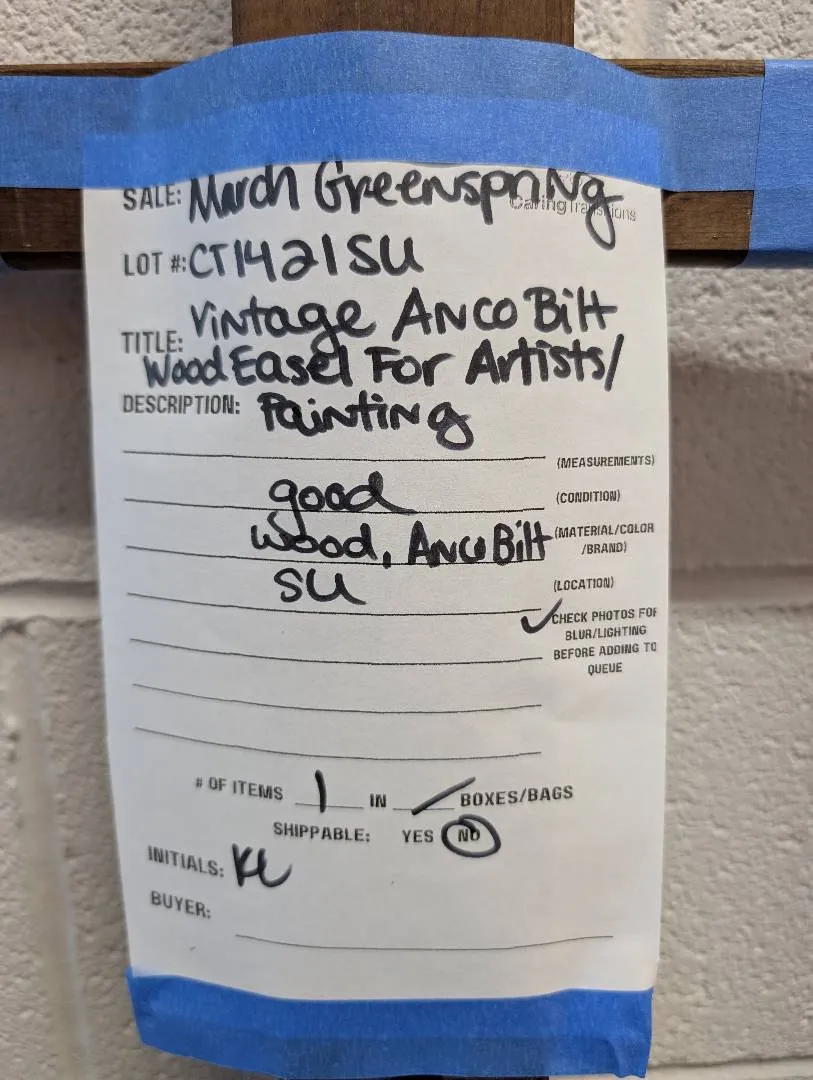 SALE: March Greenspring
Caring Transitions
LOT #: CT1421SU
TITLE: Vintage Anco Bilt
Wood Easel For Artists/
DESCRIPTION: Painting
(MEASUREMENTS)
good (CONDITION)
Wood, Anco Bilt (MATERIAL/COLOR
/BRAND)
SU (LOCATION)
✓ CHECK PHOTOS FOR
BLUR/LIGHTING
BEFORE ADDING TO
QUEUE
# OF ITEMS 1 IN / BOXES/BAGS
SHIPPABLE: YES NO
INITIALS: KL
BUYER: